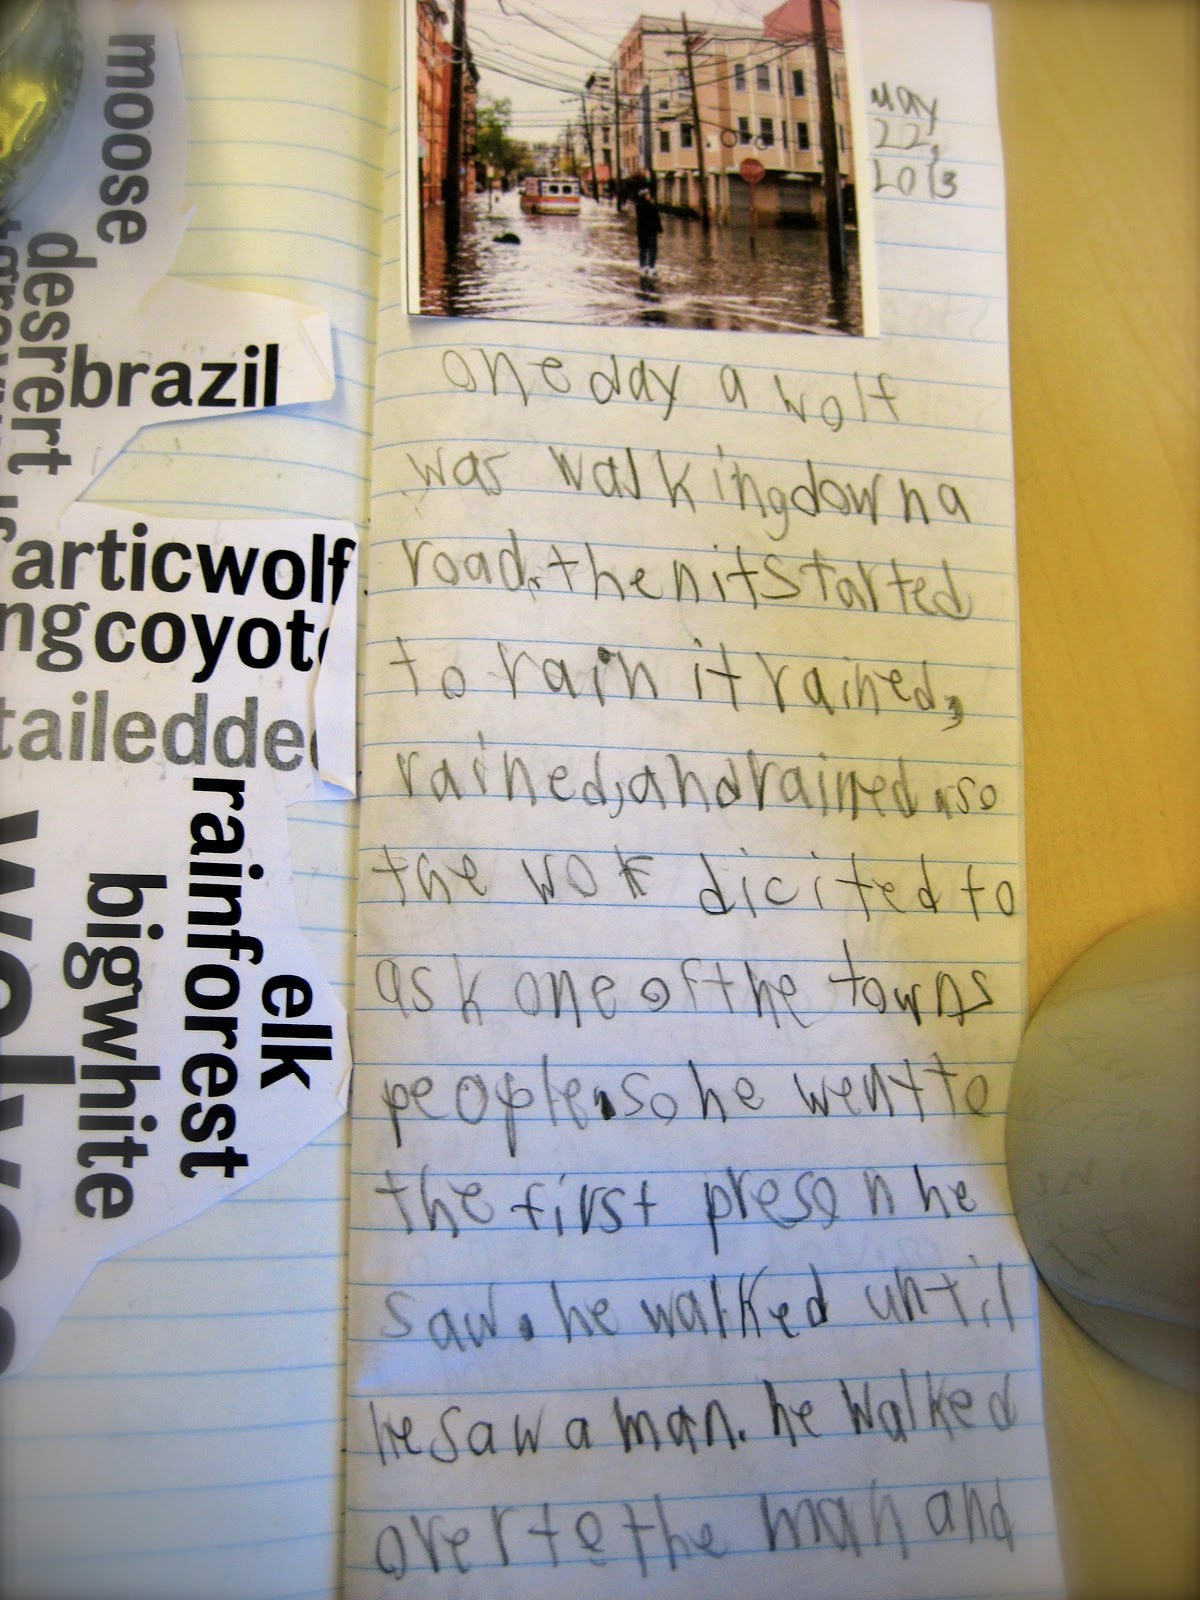 moose
desrert
brazil
articwolf
ng coyot
tailedde
rainforest
elk
bigwhite
May
22,
2013
one day a wolf
was walking down a
road. then it started
to rain it rained,
rained, and rained. so
the wolf dicited to
ask one of the towns
people. so he went to
the first preson he
saw. he walked until
he saw a man. he walked
over to the man and